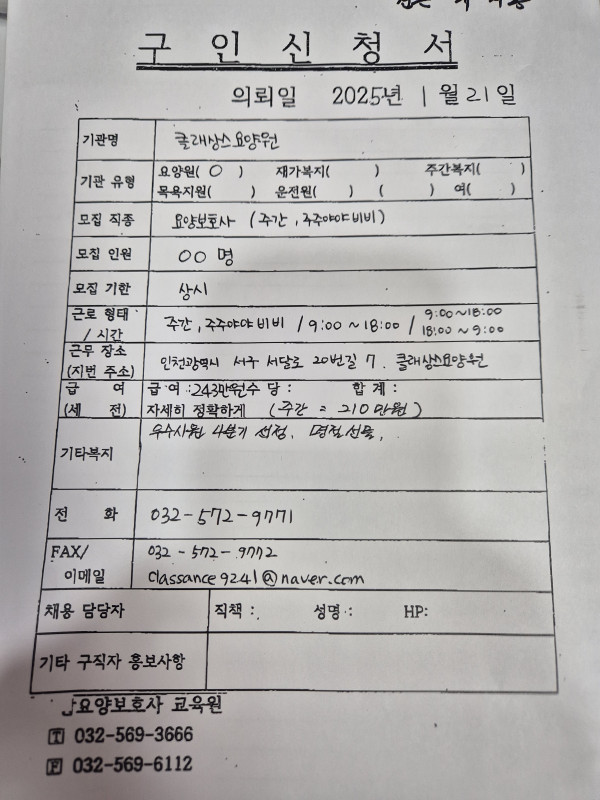 구 인 신 청 서
의뢰일 2025년 1월 21일
기관명 클래상스요양원
기관 유형 요양원( O ) 재가복지( ) 주간복지( )
목욕지원( ) 운전원( ) ( ) 여( )
모집 직종 요양보호사 (주간, 주주야야비비)
모집 인원 00 명
모집 기한 상시
근로 형태 / 시간 주간, 주주야야비비 / 9:00 ~ 18:00 / 9:00 ~ 18:00
18:00 ~ 9:00
근무 장소 (지번 주소) 인천광역시 서구 서달로 20번길 7. 클래상스요양원
급 여 급 여 : 243만원 수 당 : 합 계 :
(세 전) 자세히 정확하게 (주간 = 210만원)
기타복지 우수사원 4분기 선정, 명절선물,
전 화 032-572-9771
FAX/ 032-572-9772
이메일 classance9241@naver.com
채용 담당자 직책 : 성명 : HP:
기타 구직자 홍보사항
요양보호사 교육원
T 032-569-3666
F 032-569-6112